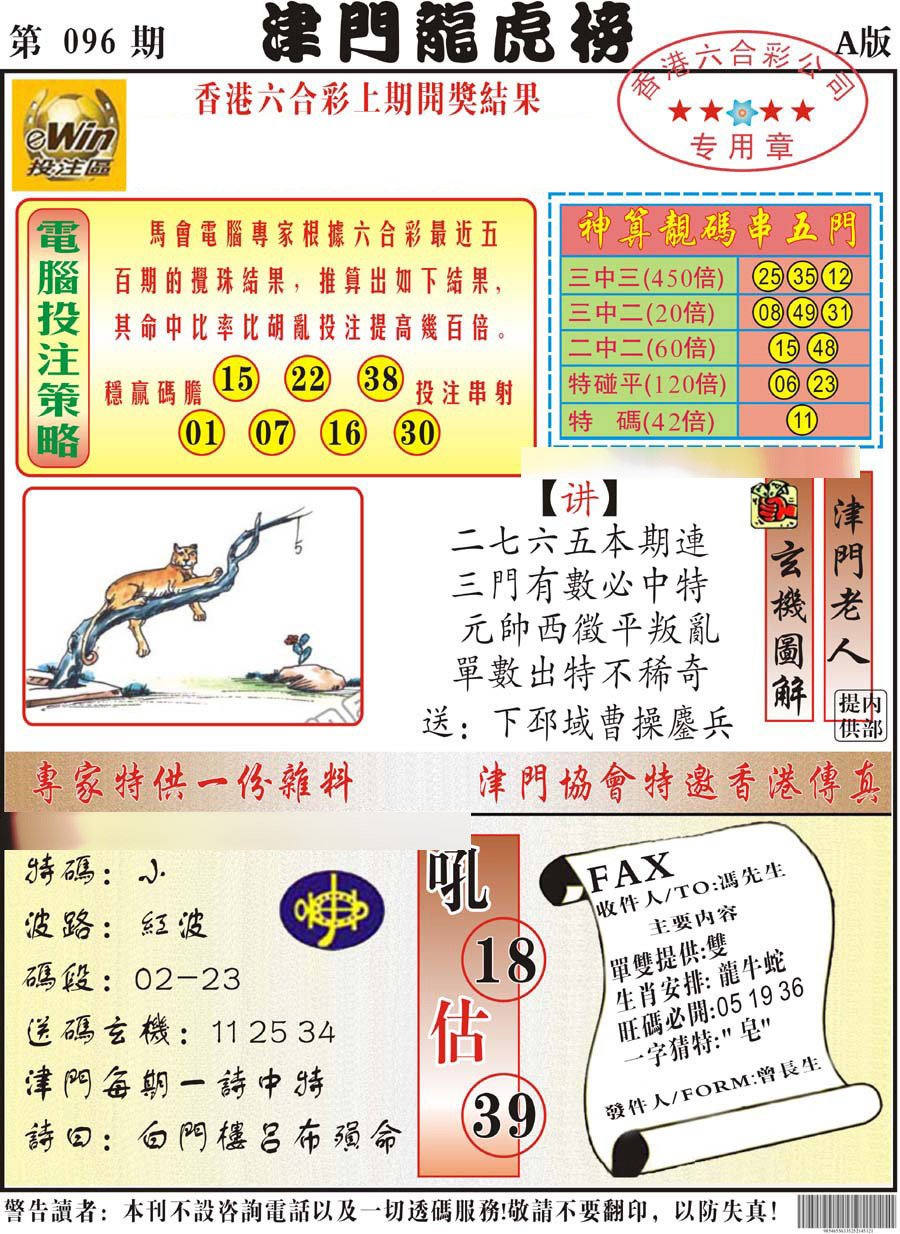 第 096 期
津門龍虎榜
A版
香港六合彩公司
专用章
香港六合彩上期開獎結果
eWin
投注區
電腦投注策略
馬會電腦專家根據六合彩最近五
百期的攪珠結果，推算出如下結果，
其命中比率比胡亂投注提高幾百倍。
穩贏碼膽 15 22 38 投注串射
01 07 16 30
神算靚碼串五門
三中三(450倍) 25 35 12
三中二(20倍) 08 49 31
二中二(60倍) 15 48
特碰平(120倍) 06 23
特 碼(42倍) 11
5
【讲】
二七六五本期連
三門有數必中特
元帥西徵平叛亂
單數出特不稀奇
送：下邳域曹操鏖兵
玄機圖解
津門老人
内部提供
專家特供一份雜料
津門協會特邀香港傳真
特碼：小
波路：紅波
碼段：02-23
送碼玄機：11 25 34
津門每期一詩中特
詩曰：白門樓呂布殞命
吼
18
估
39
FAX
收件人/TO:馮先生
主要内容
單雙提供:雙
生肖安排: 龍牛蛇
旺碼必開:05 19 36
一字猜特:" 皂"
發件人/FORM:曾長生
警告讀者：本刊不設咨詢電話以及一切透碼服務!敬請不要翻印，以防失真！